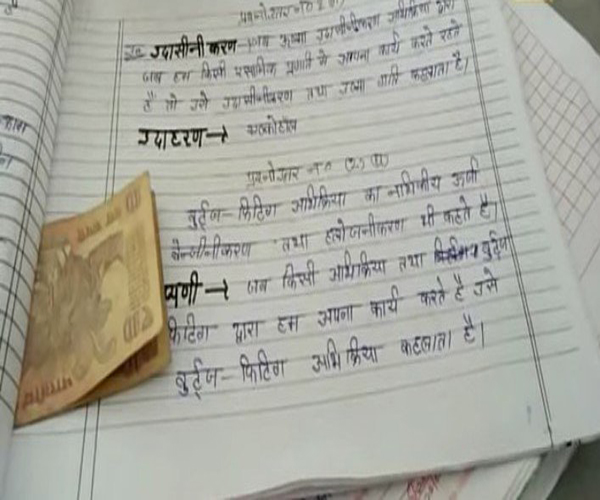 प्रश्नोत्तर न०
उदासीनीकरण – जब ऊष्मा उदासीनीकरण अभिक्रिया द्वारा
जब हम किसी रसायनिक प्रणाली में अपना कार्य करते रहते
है तो उसे उदासीनीकरण तथा ऊष्मा गति कहलाता है।
उदाहरण → एल्कोहॉल
प्रश्नोत्तर न०
वुर्ट्ज – फिटिग अभिक्रिया का नाभिकीय ऊर्जा
बेन्जीनीकरण तथा हलोजनीकरण भी कहते है।
प्पणी → जब किसी अभिक्रिया तथा वुर्ट्ज
फिटिग द्वारा हम अपना कार्य करते है उसे
वुर्ट्ज – फिटिग अभिक्रिया कहलाता है।